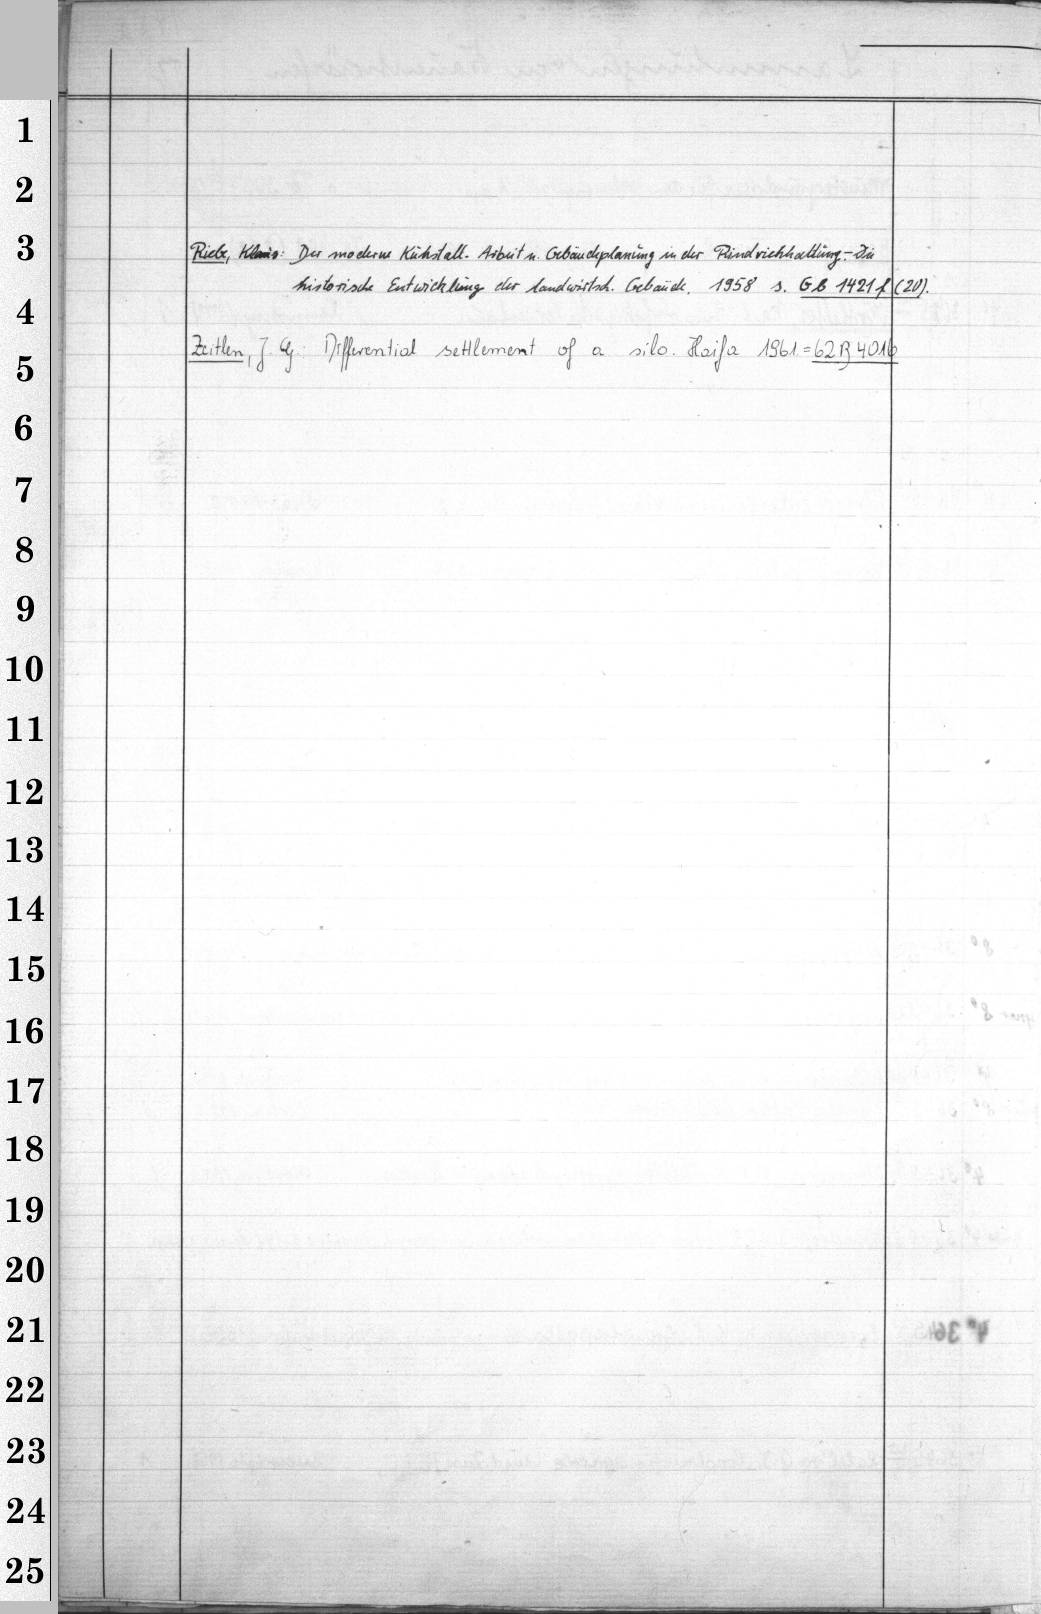 1
2
3
Riebe, Klaus: Der moderne Kuhstall. Arbeit u. Gebäudeplanung in der Rindviehhaltung. - Die
historische Entwicklung der landwirtsch. Gebäude. 1958 s. GB 1421 f (20).
4
Zeitlen, J. G.: Differential settlement of a silo. Haifa 1961. = 62 B 4016
5
6
7
8
9
10
11
12
13
14
15
16
17
18
19
20
21
22
23
24
25